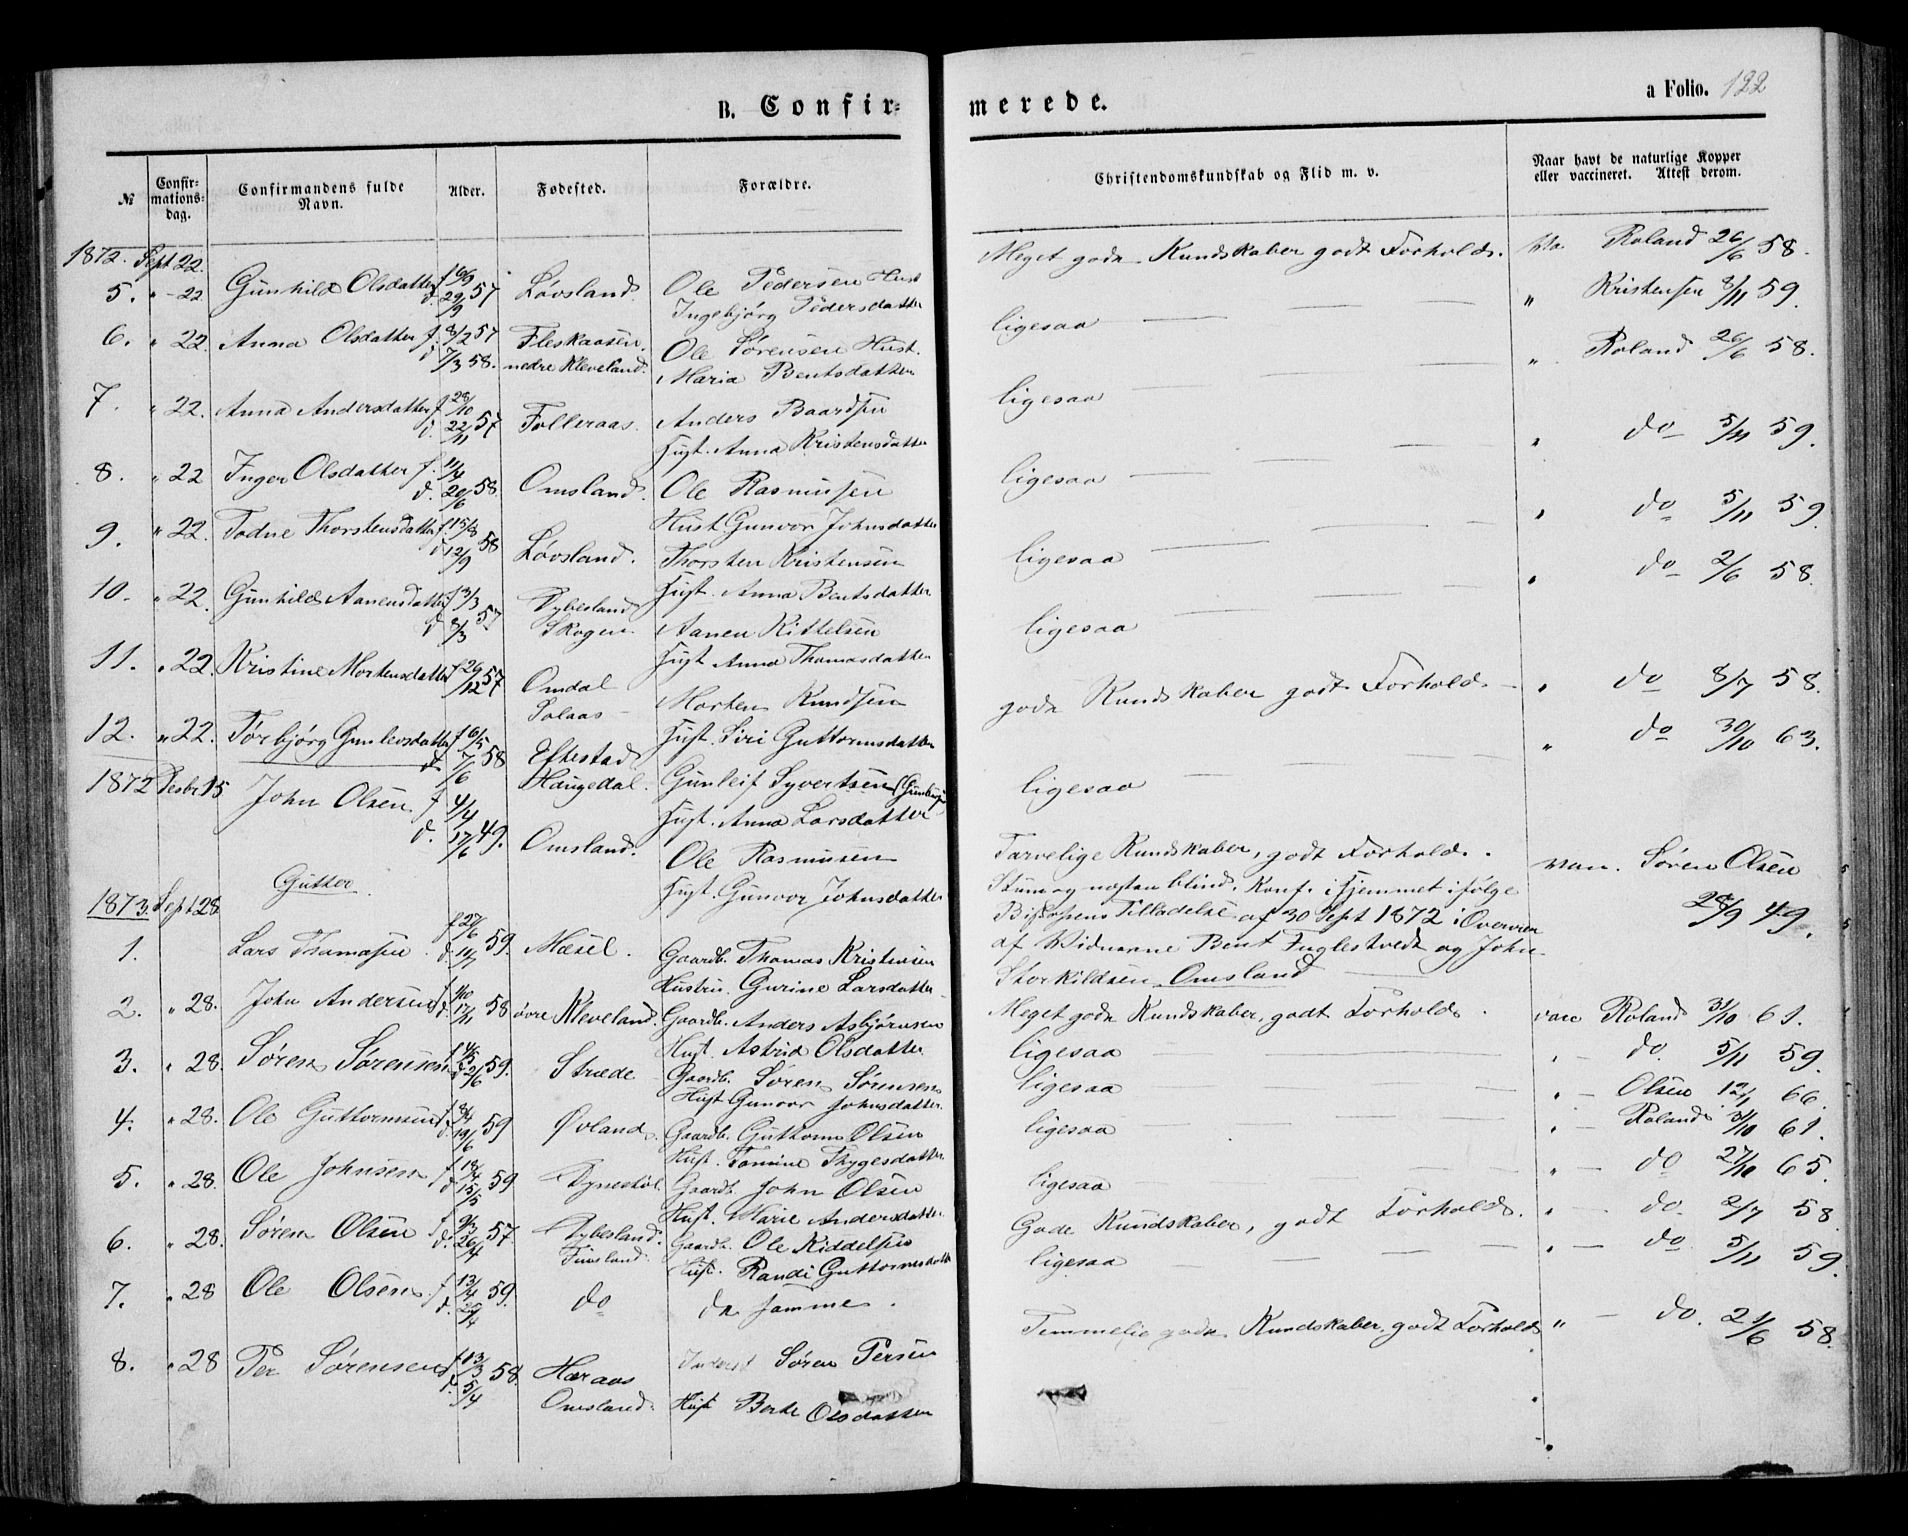 B. Confir=
merede.
a Folio. 122
№
Confir-
mations-
dag.
Confirmandens fulde
Navn.
Alder.
Fødested.
Forældre.
Christendomskundskab og Flid m. v.
Naar havt de naturlige Kopper
eller vaccineret. Attest derom.
1872. Sept 22.
5. " 22 Gunhild Olsdatter f. d. 29/9 57 Løvsland. Ole Pedersen Hust
Ingebjørg Pedersdatter
Meget gode Kundskaber godt Forhold. Roland 26/6 58.
6. " 22. Anna Olsdatter f. 8/2 57 Fleskaasen. Ole Sørensen Hust.
d. 7/3 58. nedre Kleveland. Maria Bentsdatter
ligesaa " Kristensen 8/11 59.
7. " 22. Anna Andersdatter f. 28/10 d. 22/11 57 Folleraas. Anders Baardsen
Hust. Anna Kristensdatter
ligesaa " Roland 26/6 58.
8. " 22 Inger Olsdatter f. 11/4 d. 20/6 58. Omsland. Ole Rasmussen
Hust Gunvor Johnsdatter
ligesaa " do 5/11 59.
9. " 22. Todne Thorstensdatter f. 15/8 d. 12/9 58 Løvsland. Thorsten Kristensen
Hust. Anna Bentsdatter
ligesaa " do 5/11 59.
10. " 22. Gunhild Aanensdatter f. d. 8/3 57 Dybesland Skogen. Aanen Kittelsen
Hust Anna Thomasdatter
ligesaa " do 2/6 58.
11. " 22. Kristine Mortensdatter f. 26/12 57 Omdal Solaas Morten Knudsen
Hust. Siri Guttormsdatter
gode Kundskaber godt Forhold " do 8/7 58.
12. " 22. Torbjørg Gunleivsdatter f. 16/5 d. 7/6 58 Eftestad Haugedal. Gunleif Syvertsen
Hust. Anna Larsdatter
ligesaa " do 30/10 63.
1872 Desbr 15 John Olsen f. 4/4 d. 17/6 49. Omsland. Ole Rasmussen
Hust. Gunvor Johnsdatter
Tarvelige Kundskaber, godt Forhold.
Stum og næsten blind. Konf. i Hjemmet ifølge
Biskopens Tilladelse af 30 Sept 1872 i Overvær
af Vidnerne Bent Fuglestvedt og John
Storkildsen Omsland
vac. Søren Olsen
28/9 49.
Gutter.
1873. Sept 28
1. Lars Thomassen f. 27/6 d. 10/7 59. Mæsel. Gaardb. Thomas Kristensen
Hustru. Gurine Larsdatter
Meget gode Kundskaber, godt Forhold. vac Roland 31/10 61.
2. " 28. John Andersen d. 17/11 58 øvre Kleveland. Gaardb. Anders Asbjørnsen
Hust. Astrid Olsdatter
ligesaa " do. 5/11 59.
3. " 28. Søren Sørensen f. 4/5 59. Stræde Gaardb. Søren Sørensen
Hust Gunvor Johnsdatter.
ligesaa " Olsen 12/1 66.
4. " 28. Ole Guttormsen f. 8/4 d. 19/6 59 Øvland. Gaardb. Guttorm Olsen
Hust. Tomine Thygesdatter
ligesaa " Roland 31/10 61.
5. " 28. Ole Johnsen f. 18/4 d. 15/5 59 Dynestøl. Gaardb. John Olsen
Hust. Marie Andersdatter
ligesaa " do 27/10 65.
6. " 28. Søren Olsen f. 9/3 d. 26/4 57. Dybesland. Finsland. Gaardb. Ole Kiddelsen
Hust. Randi Guttormsdatter
Gode Kundskaber, godt Forhold. " do. 2/7 58.
7. " 28 Ole Olsen f. 13/4 d. 25/4 59. do De samme.
ligesaa " do 5/11 59.
8. " 28 Per Sørensen f. 13/3 d. 5/4 58. Høraas Omsland. Inderst Søren Persen
Hust Berte Olsdatter
Temmelig gode Kundskaber, godt Forhold " do. 21/6 58.